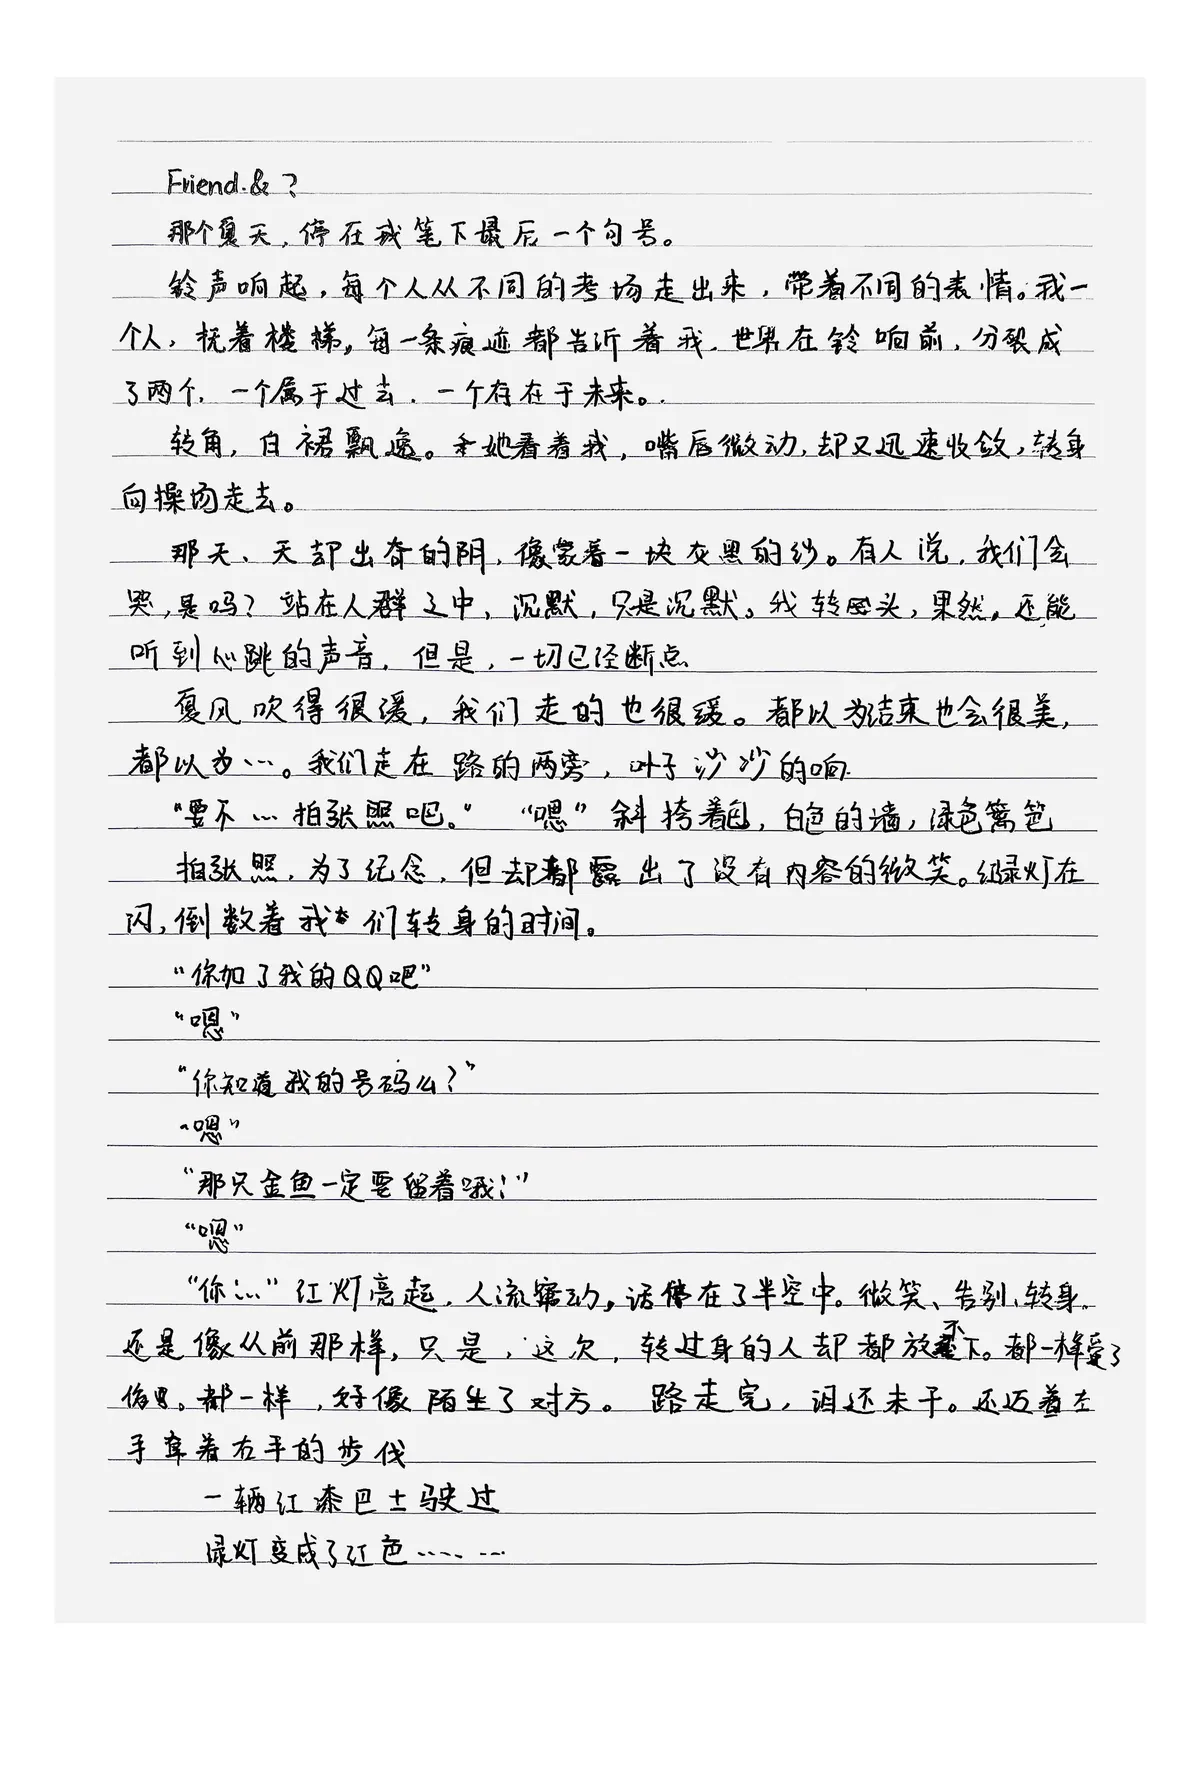 Friend.&?
那个夏天,停在我笔下最后一个句号。
铃声响起,每个人从不同的考场走出来,带着不同的表情。我一
个人,抚着楼梯,每一条痕迹都告诉着我.世界在铃响前,分裂成
了两个.一个属于过去.一个存在于未来。
转角,白裙飘逸。她看着我,嘴唇微动,却又迅速收敛,转身
向操场走去。
那天、天却出奇的阴,像蒙着一块灰黑的纱。有人说,我们会
哭,是吗?站在人群之中,沉默,只是沉默。我转回头,果然。还能
听到心跳的声音.但是,一切已经断点
夏风吹得很缓,我们走的也很缓。都以为结束也会很美,
都以为…。我们走在路的两旁,叶子沙沙的响.
“要不…拍张照吧。”“嗯”斜挎着包,白色的墙,绿色篱笆
拍张照,为了纪念,但却都露出了没有内容的微笑。红绿灯在
闪,倒数着我们转身的时间。
“你加了我的QQ吧”
“嗯”
“你知道我的号码么?”
“嗯”
“那只金鱼一定要留着哦!”
“嗯”
“你…”红灯亮起,人流窜动。话停在了半空中。微笑、告别、转身.
还是像从前那样,只是,这次,转过身的人却都放不下。都一样受了
伤。都一样,好像陌生了对方。路走完,泪还未干。还迈着左
手牵着右手的步伐
一辆红漆巴士驶过
绿灯变成了红色……